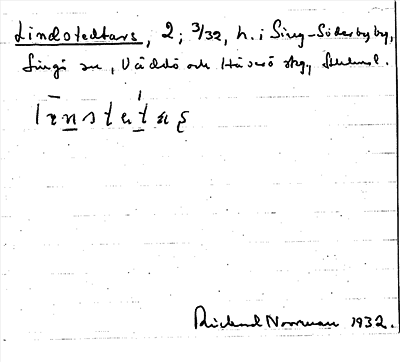 Lindstedtars, 2; 3/32, h. i Sing-Söderby by,
Singö sn, Väddö och Häverö skg, Sthlms l.
Rickard Norrman 1932.